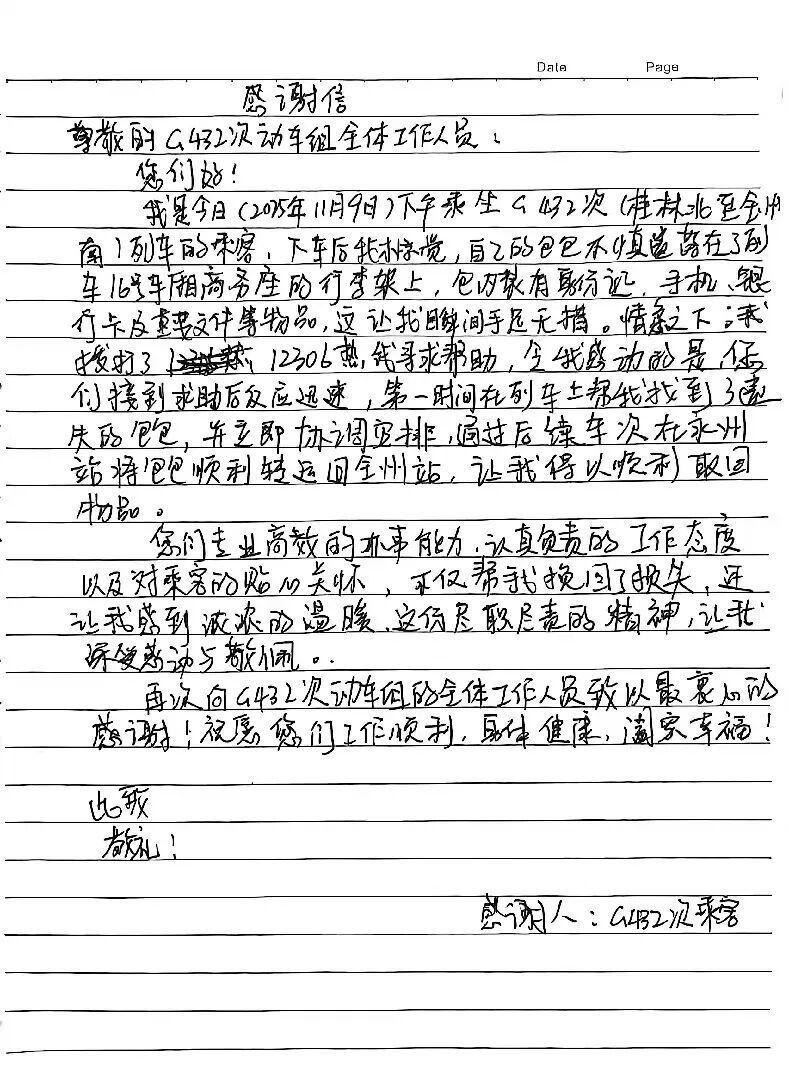 Date Page
感谢信
尊敬的G432次动车组全体工作人员：
您们好！
我是今日(2025年11月9日)下午乘坐G432次(桂林北至全州
南)列车的乘客，下车后我才惊觉，自己的包包不慎遗落在了列
车16号车厢商务座的行李架上，包内装有身份证、手机、银
行卡及重要文件等物品，这让我瞬间手足无措。情急之下，我
拨打了12306热线寻求帮助，令我感动的是，你
们接到求助后反应迅速，第一时间在列车上帮我找到了遗
失的包包，并立即协调安排，通过后续车次在永州
站将包包顺利转运回全州站，让我得以顺利取回
物品。
您们专业高效的办事能力、认真负责的工作态度
以及对乘客的贴心关怀，不仅帮我挽回了损失，还
让我感到浓浓的温暖，这份尽职尽责的精神，让我
深受感动与敬佩。
再次向G432次动车组的全体工作人员致以最衷心的
感谢！祝愿您们工作顺利，身体健康，阖家幸福！
此致
敬礼！
感谢人：G432次乘客